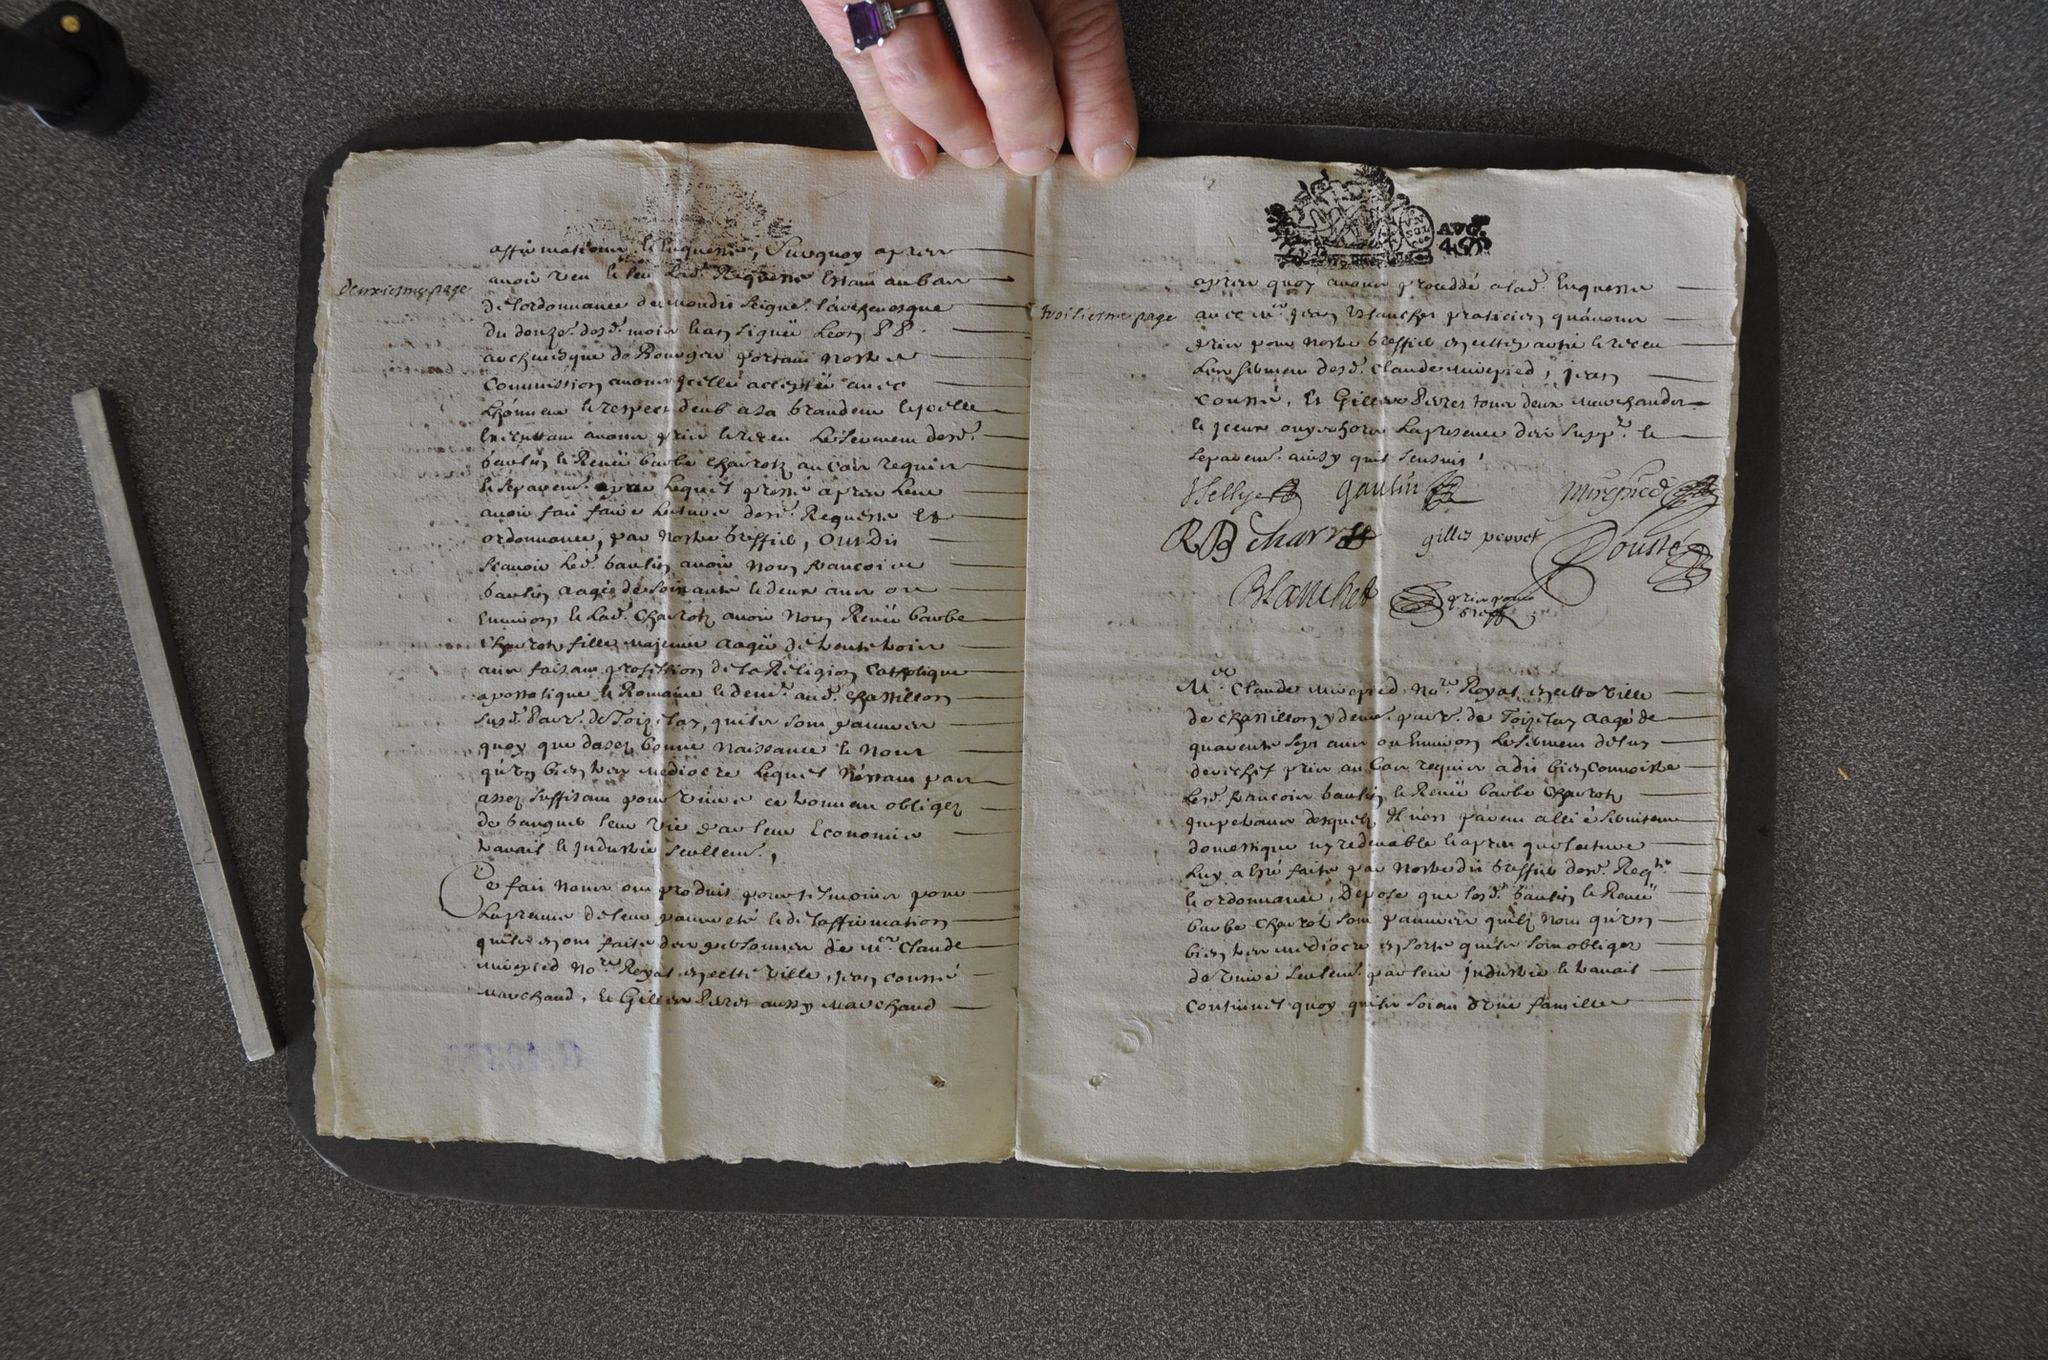 deuxiesme page
affirmations et enqueste, Surquoy apres
avoir veu et leu lad. Requeste Estant au bas
de lordonnance de mondit seigne. larchevesque
du douze. desd. mois et an signeé Leon P P.
archevesque de Bourges portant nostre
Commission avons jcelle accepteé avec
Lhonneur et respect deub a sa Grandeur et jcelle
Executtant avons prins et receu Le serment desd.
Gaulin et Reneé barbe charrotz au cas requis
et separem. lequel presté apres Leur
avoir fait faire Lecture desd. Requeste Et
ordonnance, par nostre Greffier, Ont Dit
Scavoir Led. Gaulin avoir Nom francois
Gaulin aagé de soixante et deux ans ou
Environ et Lad. Charrotz avoir Nom Reneé barbe
Charrotz fille majeure aageé de trente trois
ans faisant profession de la Religion Catholique
apostolique et Romaine et demt. aud. chastillon
susd. Parr. de Toizelay, quils sont pauvres
quoy que dasez bonne Naissance et Nont
qu'en bien tres mediocre Lequel Nestant pas
assez suffisant pour vivre ce trouvent obligez
de Gangner leur vie par leur Economie
travail et jndustrie seullemt.,
Ce fait Nous ont produit pour tesmoins pour
La preuve de leur pauvreté et de Laffirmation
quils en ont faite des personnes de me. Claude
mirepied no.re Royal en cette ville, jean cousté
marchand, Et Gilles Perret aussy marchand
UN SOL AUG. 4
troisiesme page
apres quoy avons procedde a lad. Enqueste
avec me. jean Blanchet praticien qu'avons
prins pour nostre Greffier en cette partie et receu
Les serment desd. Claude mirepied, jean
cousté, Et Gilles Perret tous deux marchandz
et jceux ouys hors La presence des supp. et
separem. ainsy quil sensuit
Hellye Gaulin Mirepied
R B Charrotz gilles perret Cousté
Blanchet prins pour Greff.
Me. Claude mirepied No.re Royal en cette ville
de chastillon y demt. parr. de Toizelay aagé de
quarente sept ans ou Environ Le serment de luy
derechef prins au Cas requis a dit bien Connoistre
Lesd. francois Gaulin et Reneé barbe Charrotz
jmpetrans desquelz Il nest parent allié serviteur
domestique ny redevable et apres que lecture
Luy a Esté faite par Nostre dit Greffier desd. Reqte.
et ordonnance, Depose que lesd. Gaulin et Reneé
barbe Charrotz sont pauvres quilz nont qu'en
bien tres mediocre en sorte quils sont obligez
de vivre seulemt. par leur jndustrie et travail
Continuel quoy quils soient dune famille